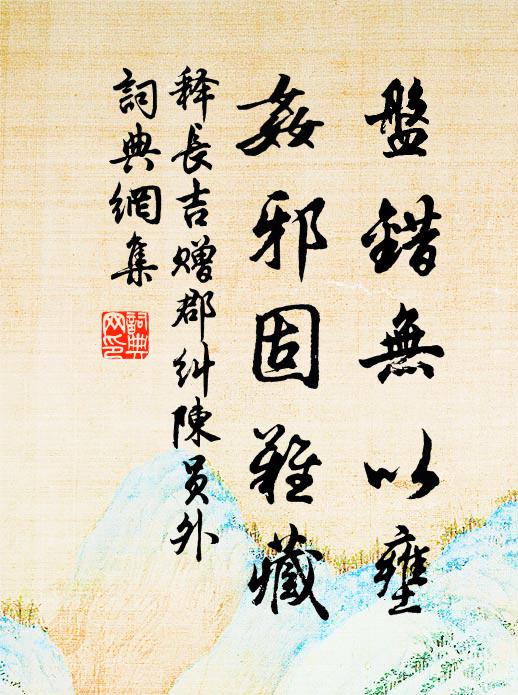 盤錯無以壅
姦邪固難藏
释長吉贈郡糾陳員外
詞典網集
詞典网印